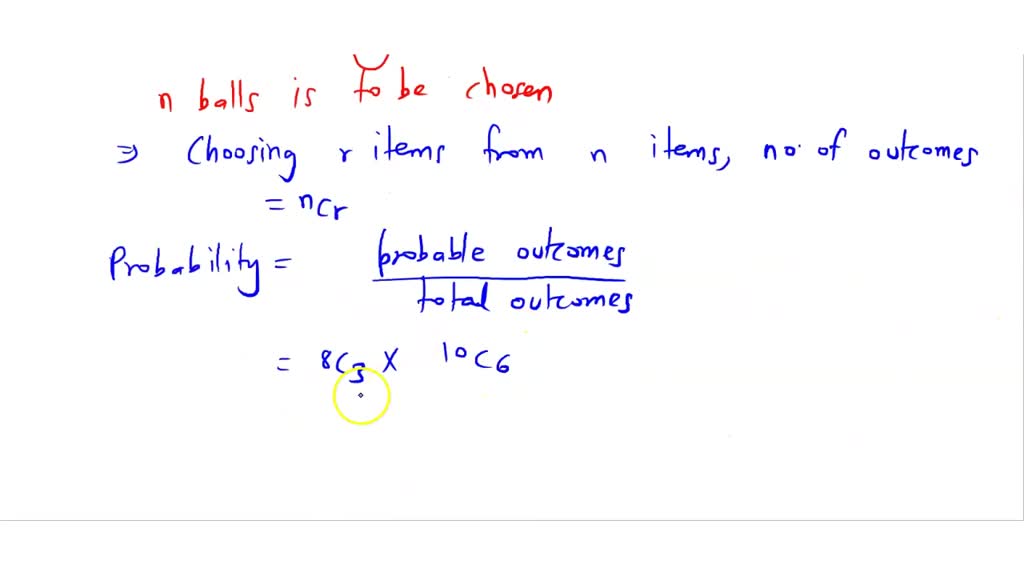 n balls is to be chosen
⇒ Choosing r items from n items, no. of outcomes
= nCr
Probability = probable outcomes
total outcomes
= 8C3 X 10C6